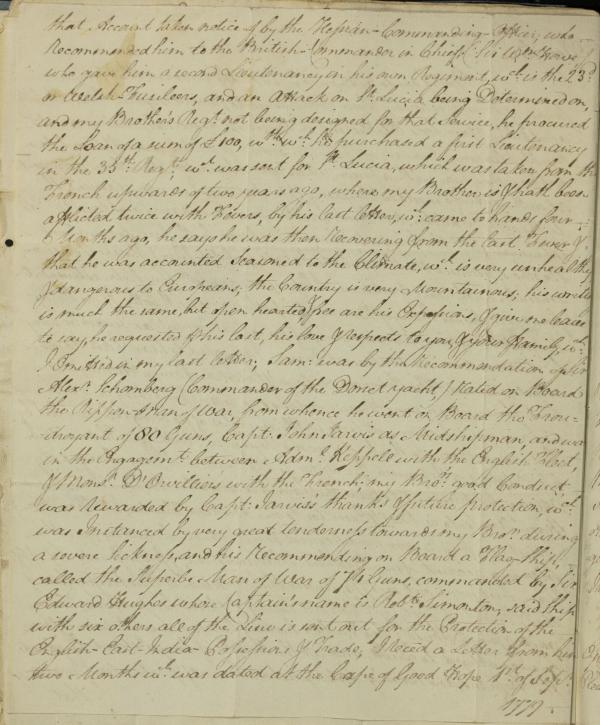 that Account taken notice of by the Hessian-Commanding-Officer, who
Recommended him to the British-Commander in Chief, (Sir Wm. Howe
who gave him a second Lieutenancy in his own Regiment, wch. is the 23d.
or Welsh-Fusileers, and an Attack on St. Lucia being Determined on,
and my Brother's Regt. not being designed for that Service, he procured
the Loan of a sum of £100, wth. wch. he purchased a first Lieutenancy
in the 35th. Regt. wch. was sent for St. Lucia, which was taken from the
French upwards of two years ago, where my Brother is & hath been
afflicted twice with Fevers, by his last letter, wch. came to hand four
Months ago, he says he was then Recovering from the last Fever &
that he was accounted Seasoned to the Climate, wch. is very unhealthy
& dangerous to Europeans, the Country is very Mountainous; his
is much the same, but open hearted & free are his Expressions, & give me leave
to say, he requested of his last, his love & respects to you & your family, wch.
I Omitted in my last letter; Sam: was by the Recommendation of Sir
Alexr. Schomberg (Commander of the Dorset yacht,) Rated on Board
the Rippon-Man of War, from whence he went on Board the Fou-
droyant of 80 Guns, Capt: John Jarvis as Midshipman, and was
in the Engagemt. between Adml. Keppele with the English Fleet,
& Monsr. D'Orvilliers with the French; my Bror's. good Conduct
was Rewarded by Capt: Jarvis's thanks & future protection, wch.
was Instanced by very great tenderness towards my Bror. during
a severe Sickness, and his Recommending on Board a Flag-Ship,
called the Superbe-Man of War of 74 Guns, commanded by Sir
Edward Hughes whose Captain's name is Robt. Simonton, said Ship
with six others all of the Line is sent out for the Protection of the
English-East-India-Possessions & Trade, I Recd. a Letter from him
two Months wch. was dated at the Cape of Good Hope 1st. of Sept.
1779.